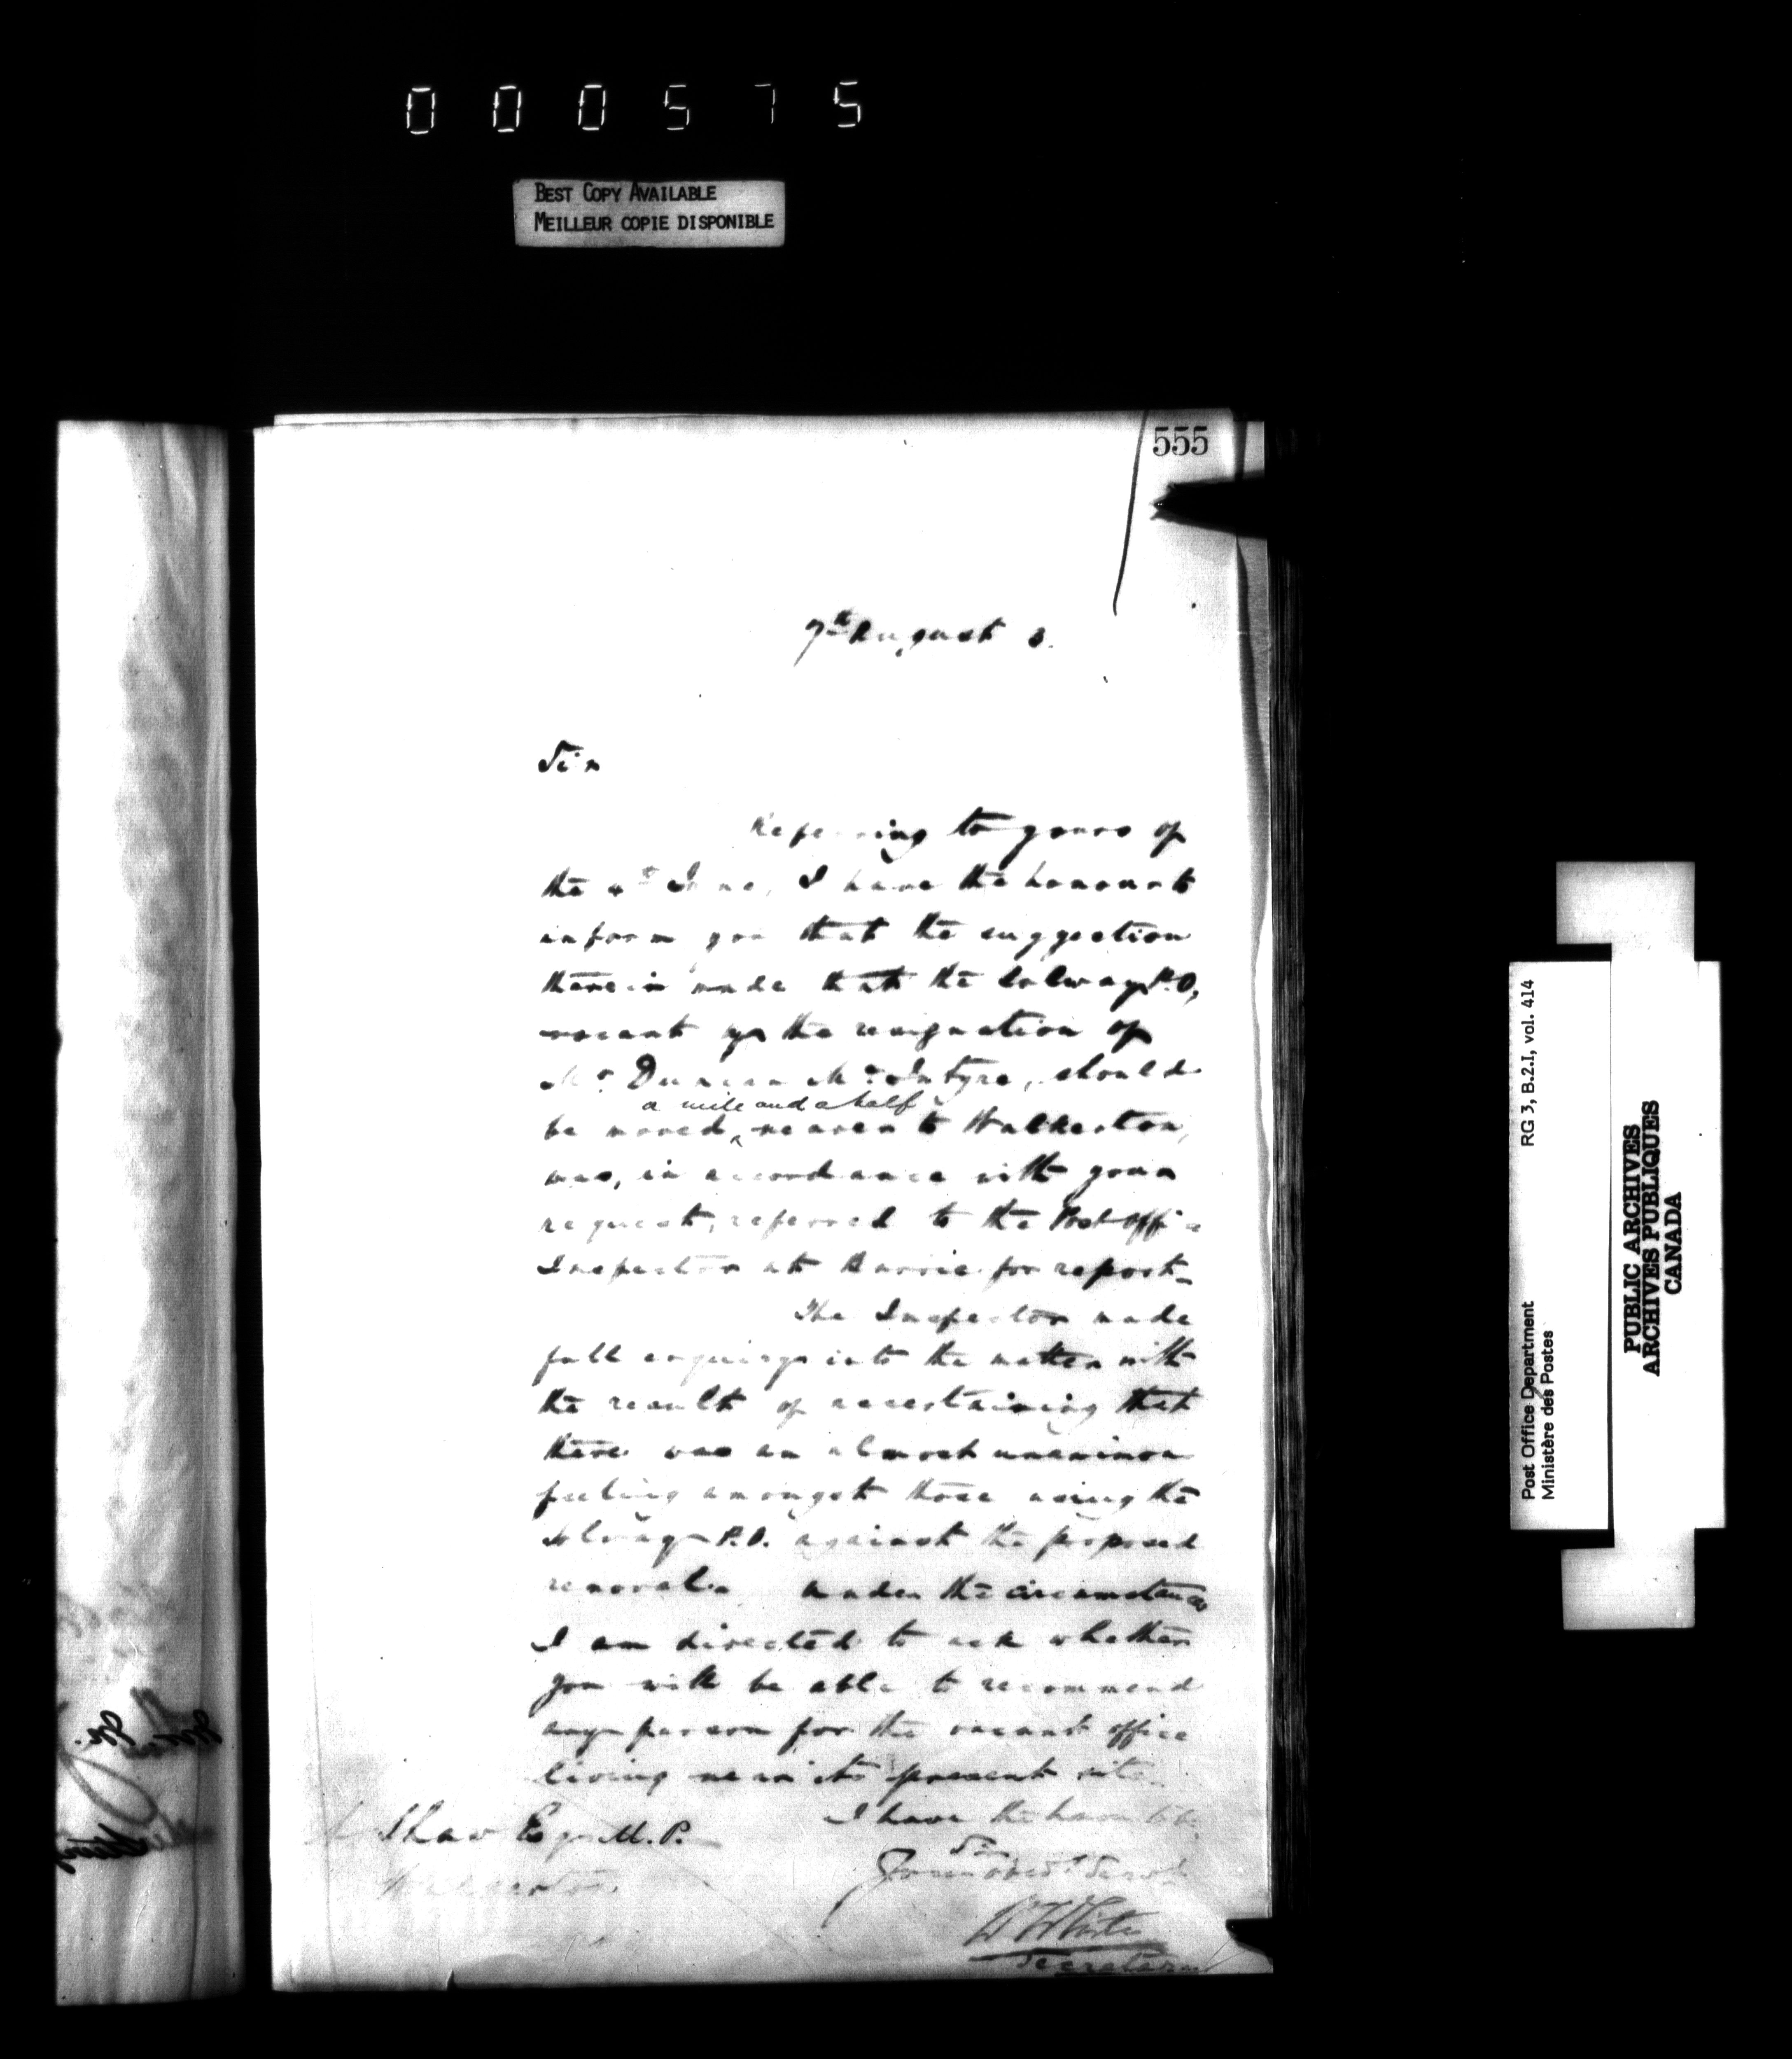 000575
BEST COPY AVAILABLE
MEILLEUR COPIE DISPONIBLE
555
7th August 3.
Sir
Referring to yours of
the 4th June, I have the honour to
inform you that the suggestion
therein made that the Solway P.O,
vacant by the resignation of
Mr Duncan McIntyre, should
a mile and a half
be moved ‸ nearer to Walkerton,
was, in accordance with your
request, referred to the Post Office
Inspector at Barrie for report_
The Inspector made
full enquiry into the matter with
the result of ascertaining that
there was an almost unanimous
feeling amongst those using the
Solway P.O. against the proposed
removal. Under the circumstances
I am directed to ask whether
you will be able to recommend
any person for the vacant office
living near its present site.
I have the honor to be,
Sir
Your obedt Servt
W White
Secretary
Shaw Esqr M.P.
Walkerton
Post Office Department
Ministère des Postes
RG 3, B.2.I, vol. 414
PUBLIC ARCHIVES
ARCHIVES PUBLIQUES
CANADA